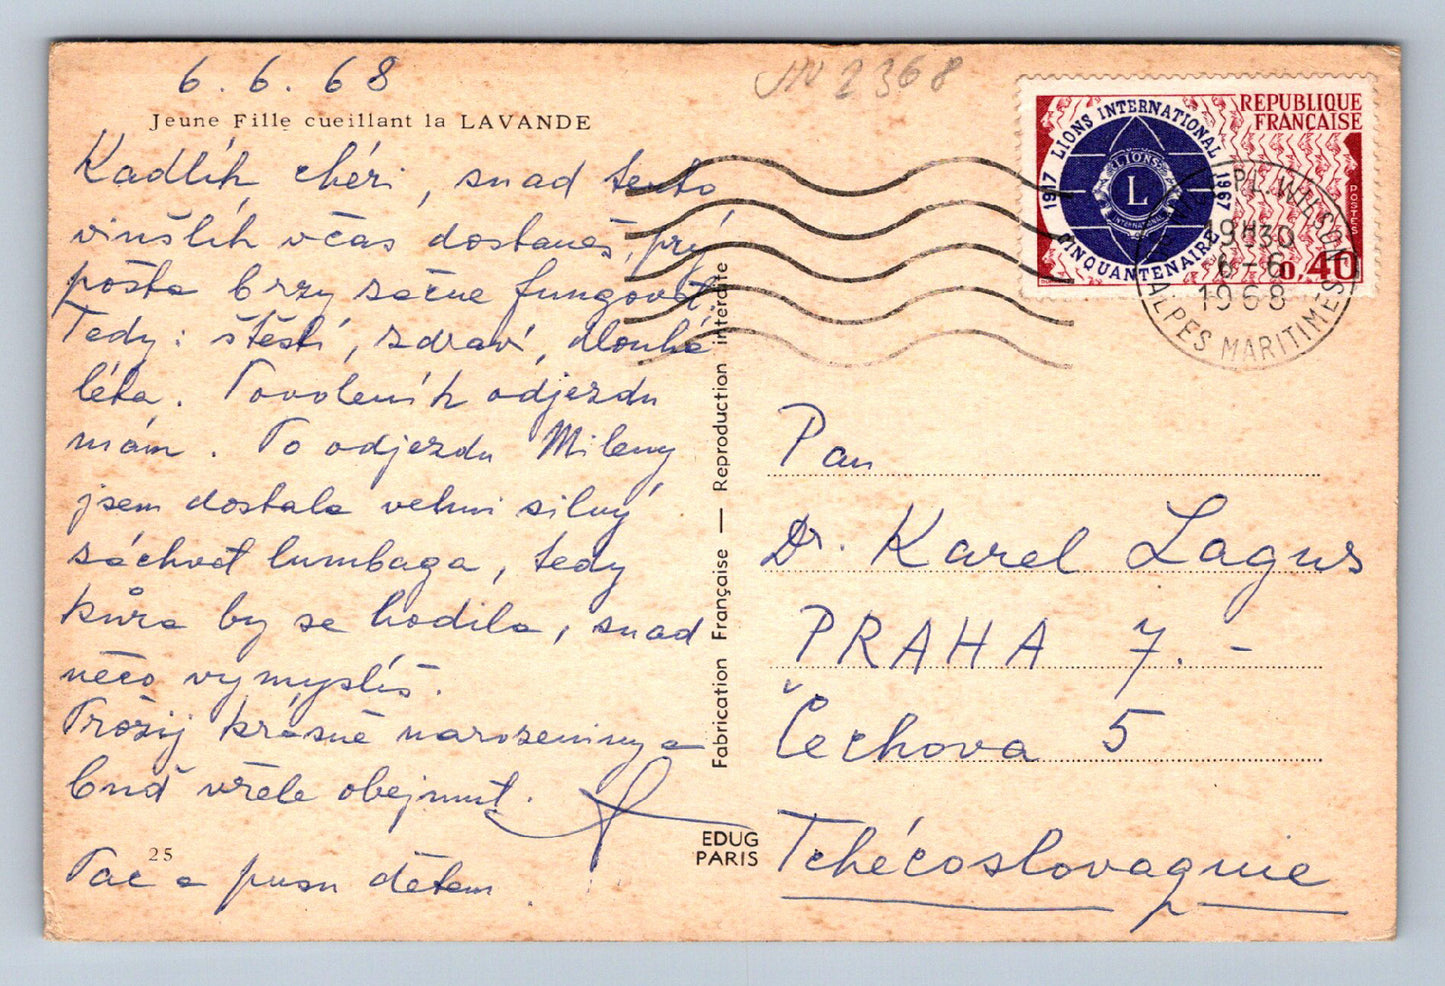 6. 6. 68
Jeune Fille cueillant la LAVANDE
Kadlík chéri, snad tento
vinšlík včas dostaneš, prý
pošta brzy začne fungovat.
Tedy: štěstí, zdraví, dlouhá
léta. Povoleník odjezdu
mám. Po odjezdu Mileny
jsem dostala velmi silný
záchvat lumbaga, tedy
kůra by se hodila, snad
něco vymyslíš.
Prožij krásné narozeniny a
buď vřele obejmut.
25
Pac a pusu dětem.
Fabrication Française — Reproduction interdite
EDUG
PARIS
2368
1917 LIONS INTERNATIONAL 1967
CINQUANTENAIRE
LIONS
L
INTERNATIONAL
REPUBLIQUE
FRANÇAISE
POSTES
0,40
PL. WILSON
19H30
6-6
1968
ALPES MARITIMES
Pan
Dr. Karel Lagus
PRAHA 7. -
Čechova 5
Tchécoslovaquie